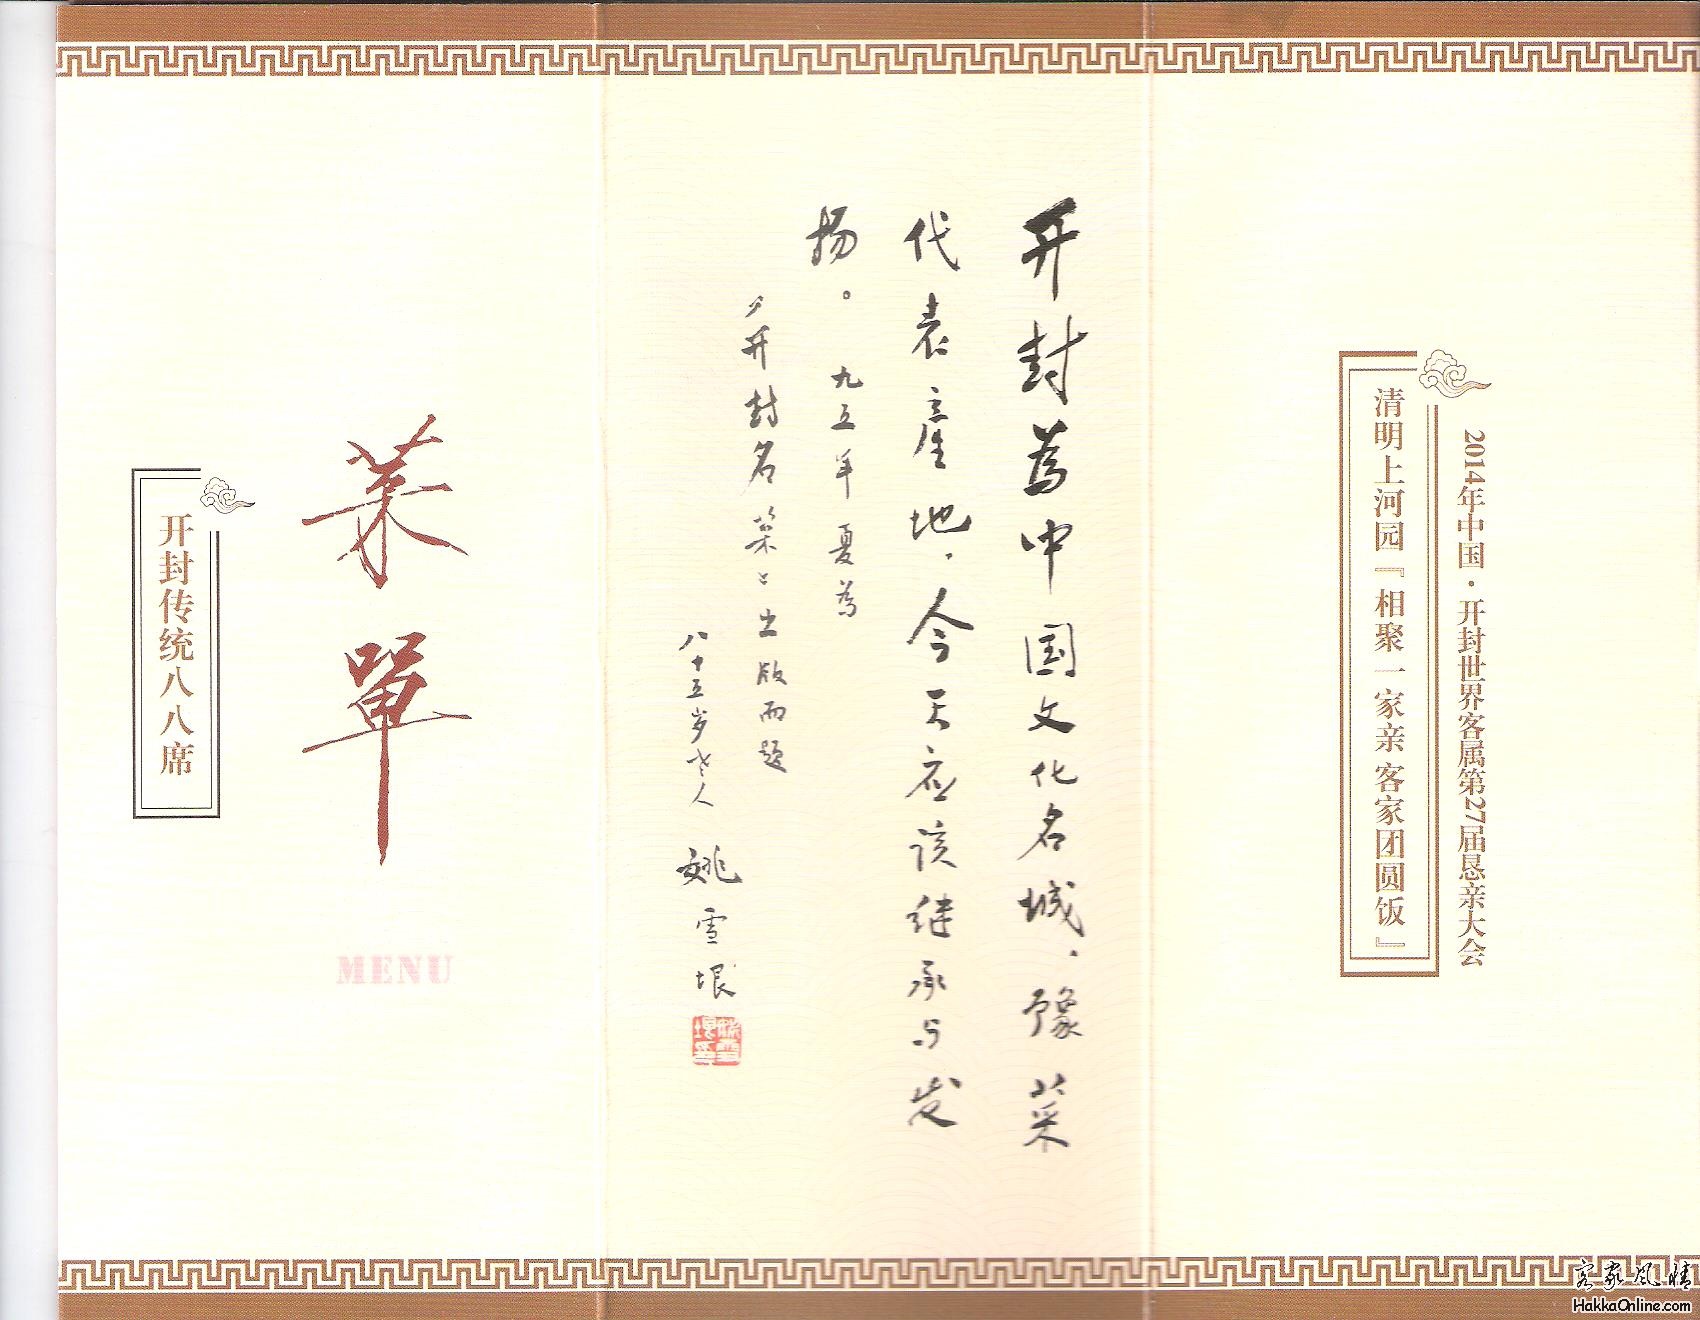 2014年中国·开封世界客属第27届恳亲大会
清明上河园『相聚一家亲 客家团圆饭』
开封為中国文化名城，豫菜
代表産地，今天应该继承与发
扬。
九五年夏為
《开封名菜》出版而题
八十五岁老人 姚雪垠
菜單
MENU
开封传统八八席
客家风情
HakkaOnline.com